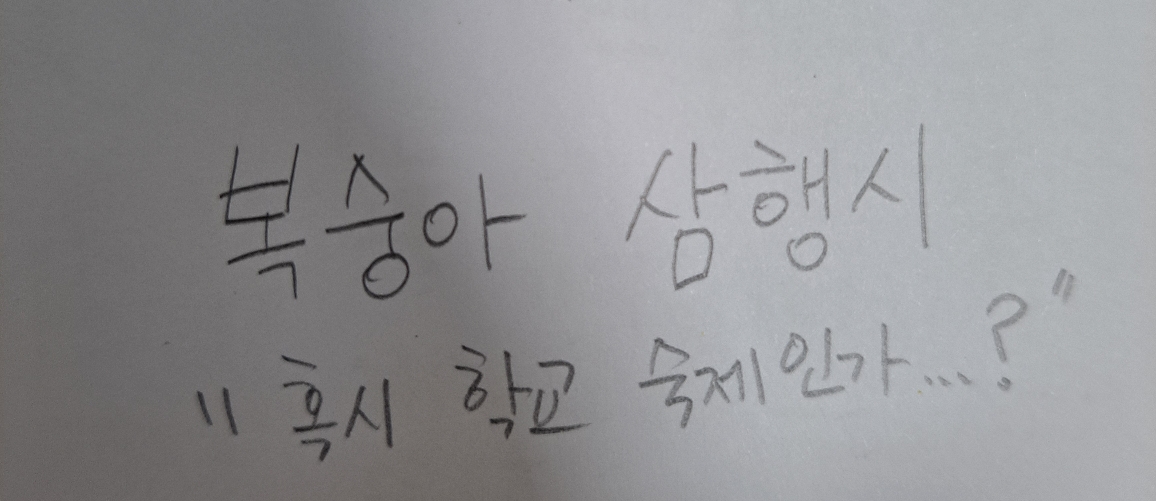 복숭아 삼행시
"혹시 학교 숙제인가...?"